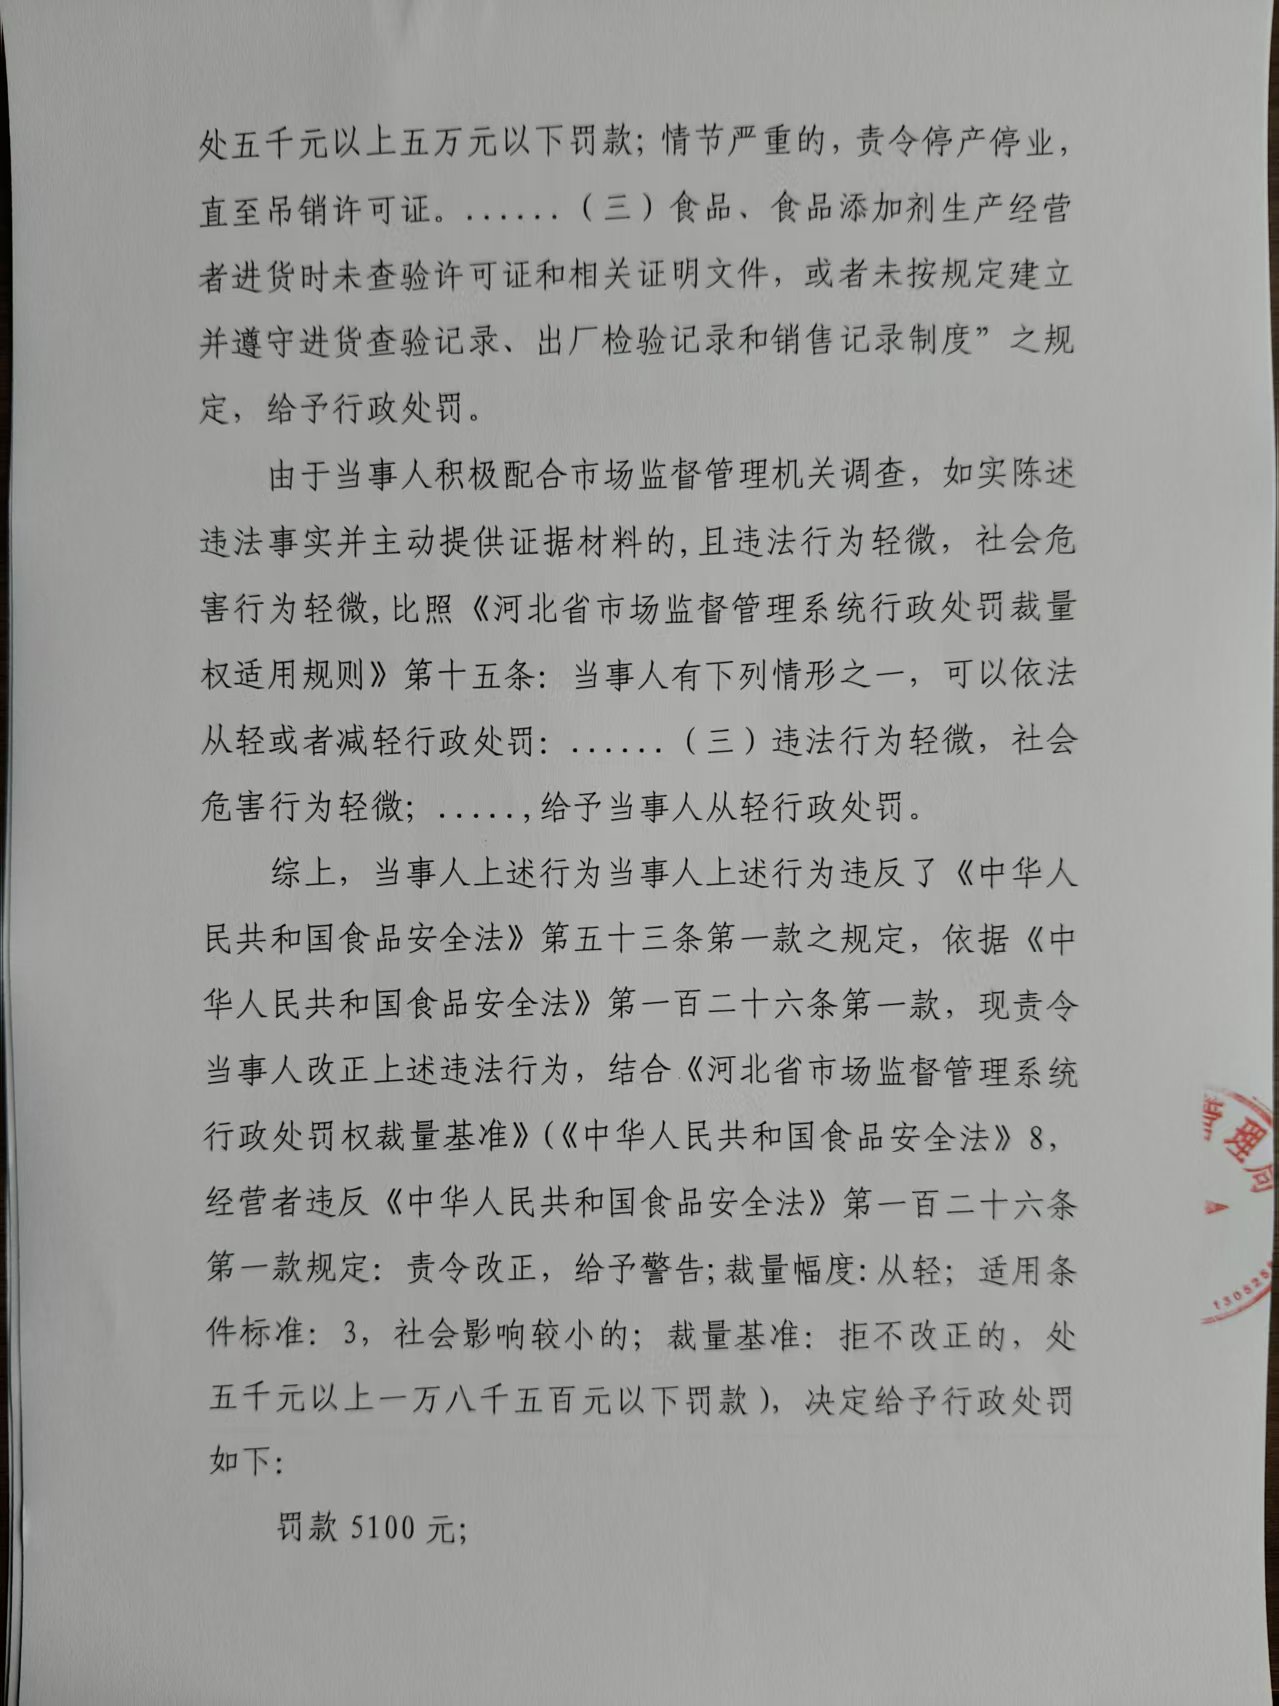 处五千元以上五万元以下罚款；情节严重的，责令停产停业，
直至吊销许可证。......（三）食品、食品添加剂生产经营
者进货时未查验许可证和相关证明文件，或者未按规定建立
并遵守进货查验记录、出厂检验记录和销售记录制度”之规
定，给予行政处罚。
由于当事人积极配合市场监督管理机关调查，如实陈述
违法事实并主动提供证据材料的,且违法行为轻微，社会危
害行为轻微,比照《河北省市场监督管理系统行政处罚裁量
权适用规则》第十五条：当事人有下列情形之一，可以依法
从轻或者减轻行政处罚：......（三）违法行为轻微，社会
危害行为轻微；.....,给予当事人从轻行政处罚。
综上，当事人上述行为当事人上述行为违反了《中华人
民共和国食品安全法》第五十三条第一款之规定，依据《中
华人民共和国食品安全法》第一百二十六条第一款，现责令
当事人改正上述违法行为，结合《河北省市场监督管理系统
行政处罚权裁量基准》(《中华人民共和国食品安全法》8，
经营者违反《中华人民共和国食品安全法》第一百二十六条
第一款规定：责令改正，给予警告;裁量幅度:从轻；适用条
件标准：3，社会影响较小的；裁量基准：拒不改正的，处
五千元以上一万八千五百元以下罚款)，决定给予行政处罚
如下：
罚款 5100 元；
理局